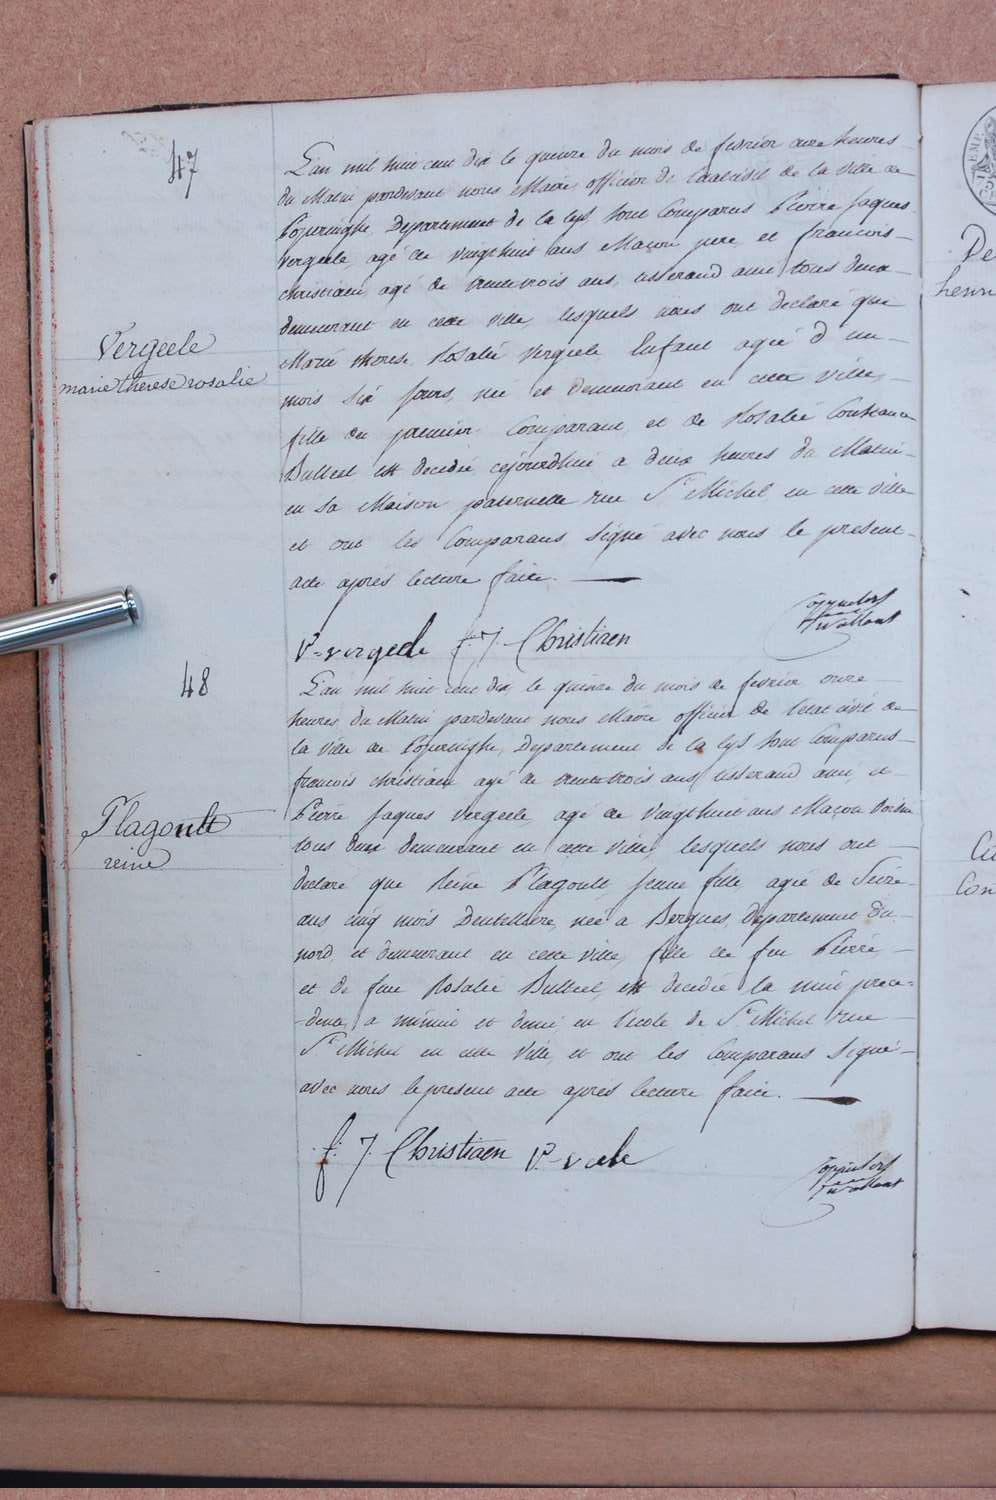 47
L'an mil huit cent dix le quinze du mois de fevrier onze heures
du Matin pardevant nous Maire officier de l'etat civil de la ville de
Poperinghe, Departement de la lys, sont Comparus Pierre Jaques
Vergeele, agé de vingthuit ans Maçon pere, et francois
christiaen, agé de trentetrois ans, tisserand ami tous deux
demeurant en cette ville, lesquels nous ont declaré que
Vergeele
Marie therese Rosalie Vergeele Enfant agée d'un
marie therese rosalie
mois six jours, née et demeurant en cette ville,
fille du premier Comparant, et de Rosalie Constance
Bulteel est decedée cejourdhui a deux heures du Matin
en sa Maison paternelle rue St Michel en cette ville
et ont les Comparans signé avec nous le present
acte après lecture faite.
P-vergeele f: J. Christiaen
48
L'an mil huit cent dix, le quinze du mois de fevrier onze
heures du Matin pardevant nous Maire officier de l'etat civil de
la ville de Poperinghe, Departement de la lys sont Comparus
francois christiaen agé de trentetrois ans, tisserand ami, et
Pierre Jaques Vergeele, agé de vingthuit ans Maçon voisin
Plagoult
tous deux demeurant en cette ville, lesquels nous ont
reine
declaré que Reine Plagoult, jeune fille, agée de seize
ans cinq mois Dentelliere, née a Bergues, departement du
nord, et demeurant en cette ville, fille de feu Pierre,
et de feue Rosalie Bulteel, est decedée la nuit prece-
-dente, a minuit et demi en l'ecole de St Michel rue
St Michel en cette ville, et ont les Comparans signé
avec nous le present acte après lecture faite.
f: J. Christiaen P-v eele
De
henri
Con